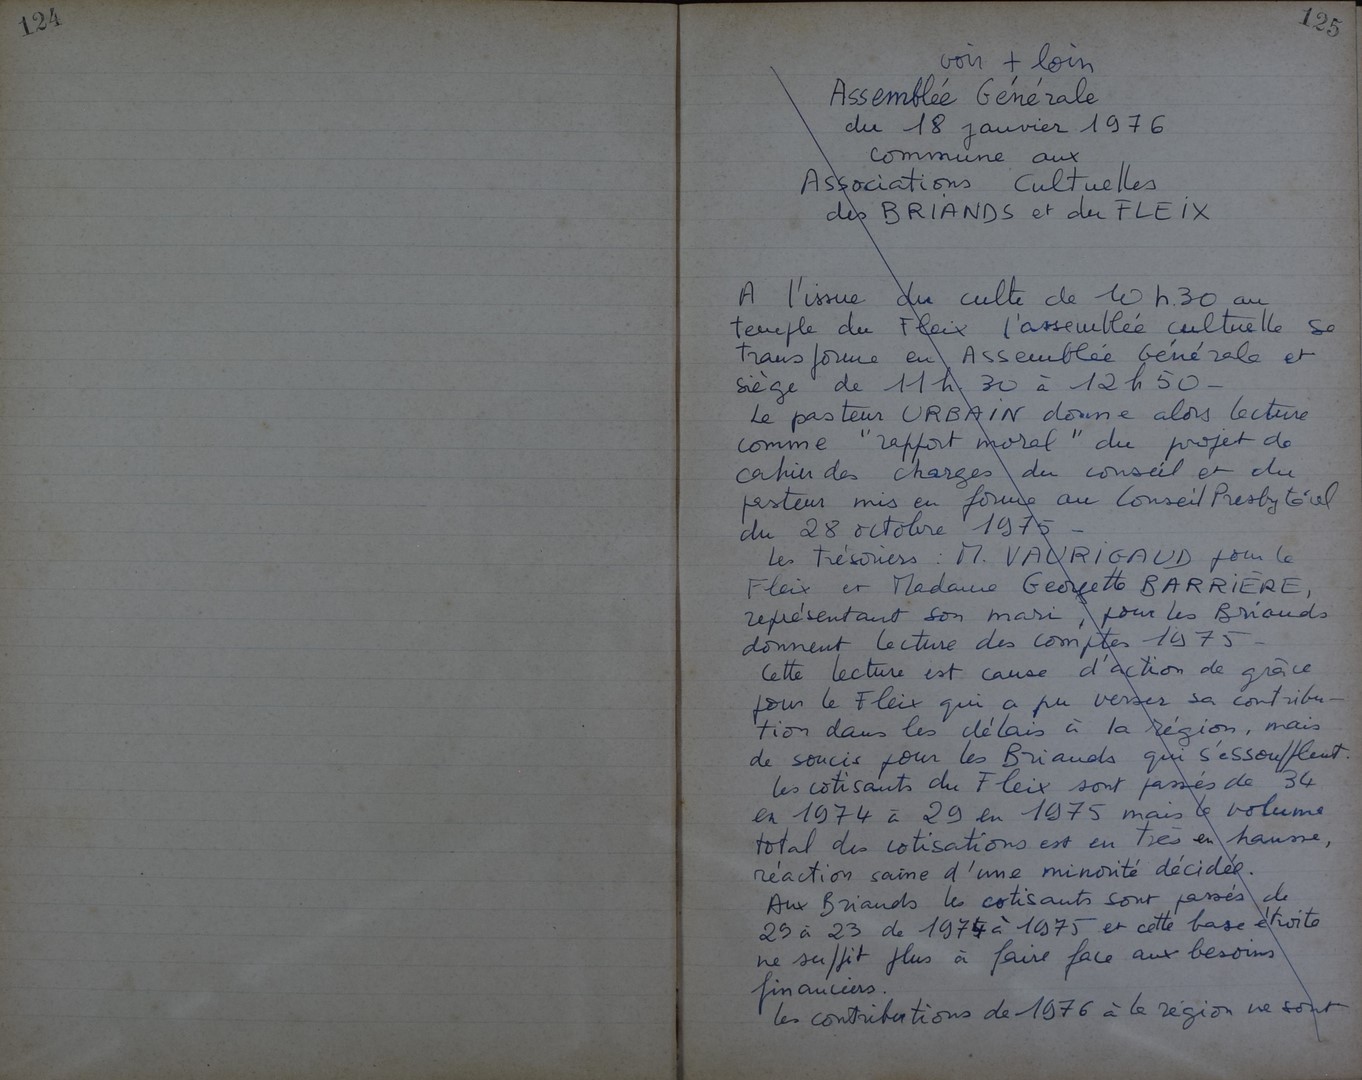 124
125
voir + loin
Assemblée Générale
du 18 janvier 1976
commune aux
Associations Cultuelles
des BRIANDS et du FLEIX
A l'issue du culte de 10 h.30 au
temple du Fleix l'assemblée cultuelle se
transforme en Assemblée Générale et
siège de 11 h. 30 à 12 h 50 -
Le pasteur URBAIN donne alors lecture
comme "rapport moral" du projet de
cahier des charges du conseil et du
pasteur mis en forme au Conseil Presbytéral
du 28 octobre 1975 -
Les trésoriers : M. VAURIGAUD pour le
Fleix et Madame Georgette BARRIÈRE,
représentant son mari, pour les Briands
donnent lecture des comptes 1975 -
Cette lecture est cause d'action de grâce
pour le Fleix qui a pu verser sa contribu-
tion dans les délais à la région, mais
de soucis pour les Briands qui s'essoufflent.
Les cotisants du Fleix sont passés de 34
en 1974 à 29 en 1975 mais le volume
total des cotisations est en très en hausse,
réaction saine d'une minorité décidée.
Aux Briands les cotisants sont passés de
29 à 23 de 1974 à 1975 et cette base étroite
ne suffit plus à faire face aux besoins
financiers.
Les contributions de 1976 à la région ne sont